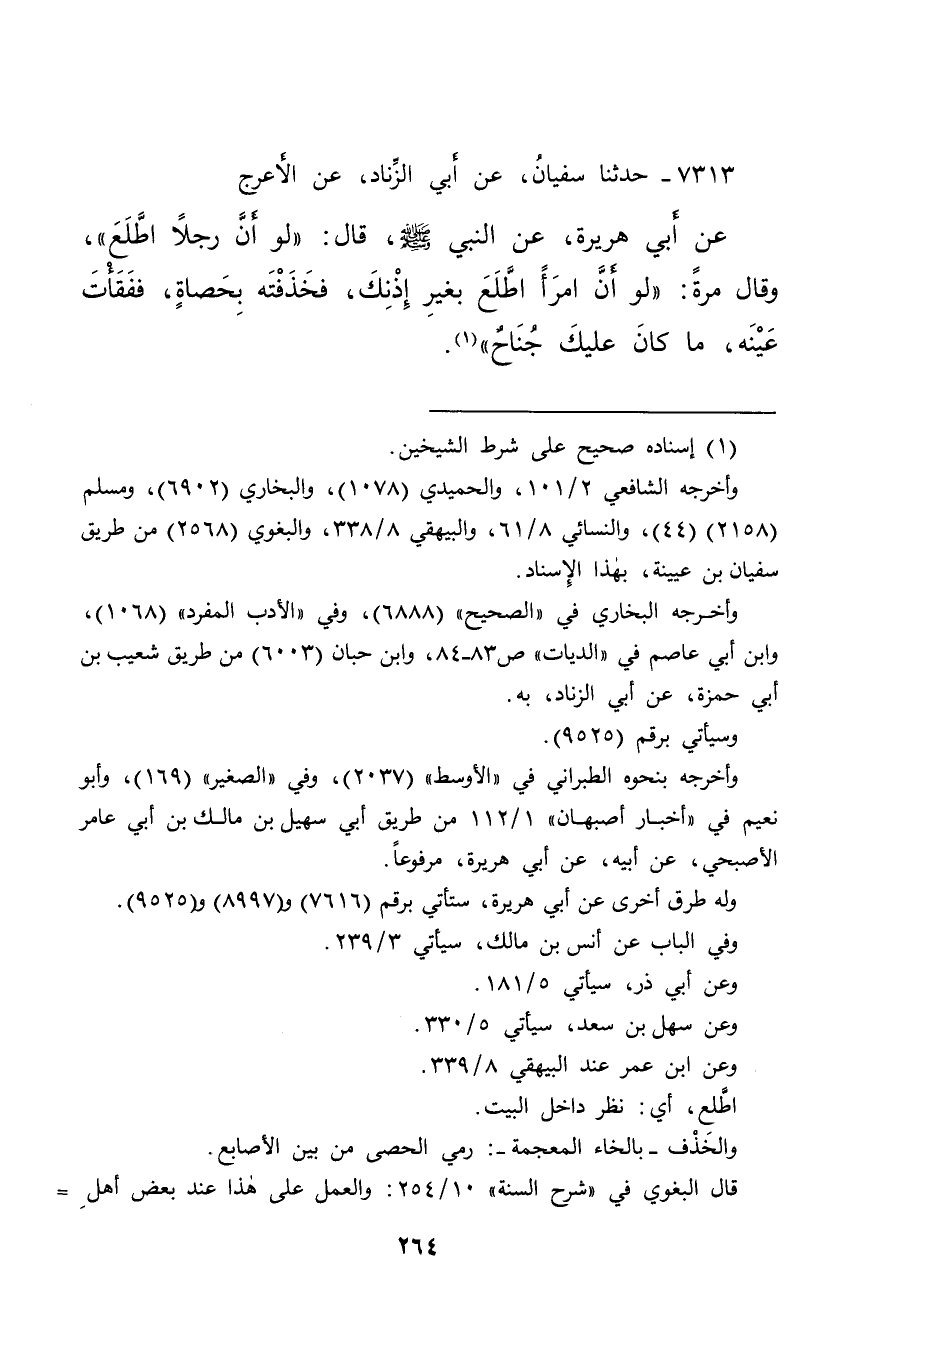 ٧٣١٣ ـ حدثنا سفيانُ، عن أَبي الزِّناد، عن الأَعرج
عن أَبي هريرة، عن النبي ﷺ، قال: «لو أَنَّ رجلًا اطَّلَعَ»،
وقال مرةً: «لو أَنَّ امرَأً اطَّلَعَ بغيرِ إِذْنِكَ، فخَذَفْتَه بِحَصاةٍ، ففَقَأْتَ
عَيْنَه، ما كانَ عليكَ جُنَاحٌ»(١).
(١) إسناده صحيح على شرط الشيخين.
وأخرجه الشافعي ١٠١/٢، والحميدي (١٠٧٨)، والبخاري (٦٩٠٢)، ومسلم
(٢١٥٨) (٤٤)، والنسائي ٦١/٨، والبيهقي ٣٣٨/٨، والبغوي (٢٥٦٨) من طريق
سفيان بن عيينة، بهٰذا الإِسناد.
وأخرجه البخاري في «الصحيح» (٦٨٨٨)، وفي «الأدب المفرد» (١٠٦٨)،
وابن أبي عاصم في «الديات» ص٨٣-٨٤، وابن حبان (٦٠٠٣) من طريق شعيب بن
أبي حمزة، عن أبي الزناد، به.
وسيأتي برقم (٩٥٢٥).
وأخرجه بنحوه الطبراني في «الأوسط» (٢٠٣٧)، وفي «الصغير» (١٦٩)، وأبو
نعيم في «أخبار أصبهان» ١١٢/١ من طريق أبي سهيل بن مالك بن أبي عامر
الأصبحي، عن أبيه، عن أبي هريرة، مرفوعاً.
وله طرق أخرى عن أبي هريرة، ستأتي برقم (٧٦١٦) و(٨٩٩٧) و(٩٥٢٥).
وفي الباب عن أنس بن مالك، سيأتي ٢٣٩/٣.
وعن أبي ذر، سيأتي ١٨١/٥.
وعن سهل بن سعد، سيأتي ٣٣٠/٥.
وعن ابن عمر عند البيهقي ٣٣٩/٨.
اطَّلع، أي: نظر داخل البيت.
والخَذْف ـ بالخاء المعجمة ـ: رمي الحصى من بين الأصابع.
قال البغوي في «شرح السنة» ٢٥٤/١٠: والعمل على هٰذا عند بعض أهل =
٢٦٤